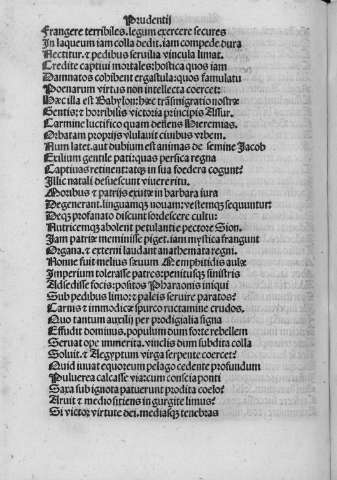 Prudentij
Frangere terribiles. legum exercere secures
In laqueum iam colla dedit. iam compede dura
Nectitur. & pedibus seruilia vincula limat.
Credite captiui mortales: hostica quos iam
Damnatos cohibent ergastula: quos famulatu
Pœnarum virtus non intellecta coercet:
Hæc illa est Babylon: hæc trãsmigratio nostræ
Gentis: & horribilis victoria principis Assur.
Carmine luctifico quam deflens Hieremias.
Orbatam proprijs vlulauit ciuibus vrbem.
Num latet. aut dubium est animas de semine Jacob
Exilium gentile pati: quas persica regna
Captiuas retinent: atqꝫ in sua fœdera cogunt?
Illic natali desuescunt viuere ritu.
Moribus & patrijs exutæ in barbara iura
Degenerant. linguamqꝫ nouam: vestemqꝫ sequuntur:
Deqꝫ profanato discunt sordescere cultu:
Nutricemqꝫ abolent petulanti e pectore Sion.
Iam patriæ meminisse piget. iam mystica frangunt
Organa. & externi laudant anathemata regni.
Nonne fuit melius seruum Memphitidis aulæ
Imperium tolerasse patres: penitusqꝫ sinistris
Adsedisse focis: positos Pharaonis iniqui
Sub pedibus limo: & paleis seruire paratos?
Carnis & immodicæ spurco ructamine crudos.
Quo tantum auxilij per prodigialia signa
Effudit dominus. populum dum forte rebellem
Seruat ope immerita. vinclis dum subdita colla
Soluit. & Aegyptum virga serpente coercet?
Quid iuuat equoreum pelago cedente profundum
Puluerea calcasse via: cum conscia ponti
Saxa sub ignota patuerunt prodita cœlo?
Aruit & medio sitiens in gurgite limus?
Si victor virtute dei. mediasqꝫ tenebras